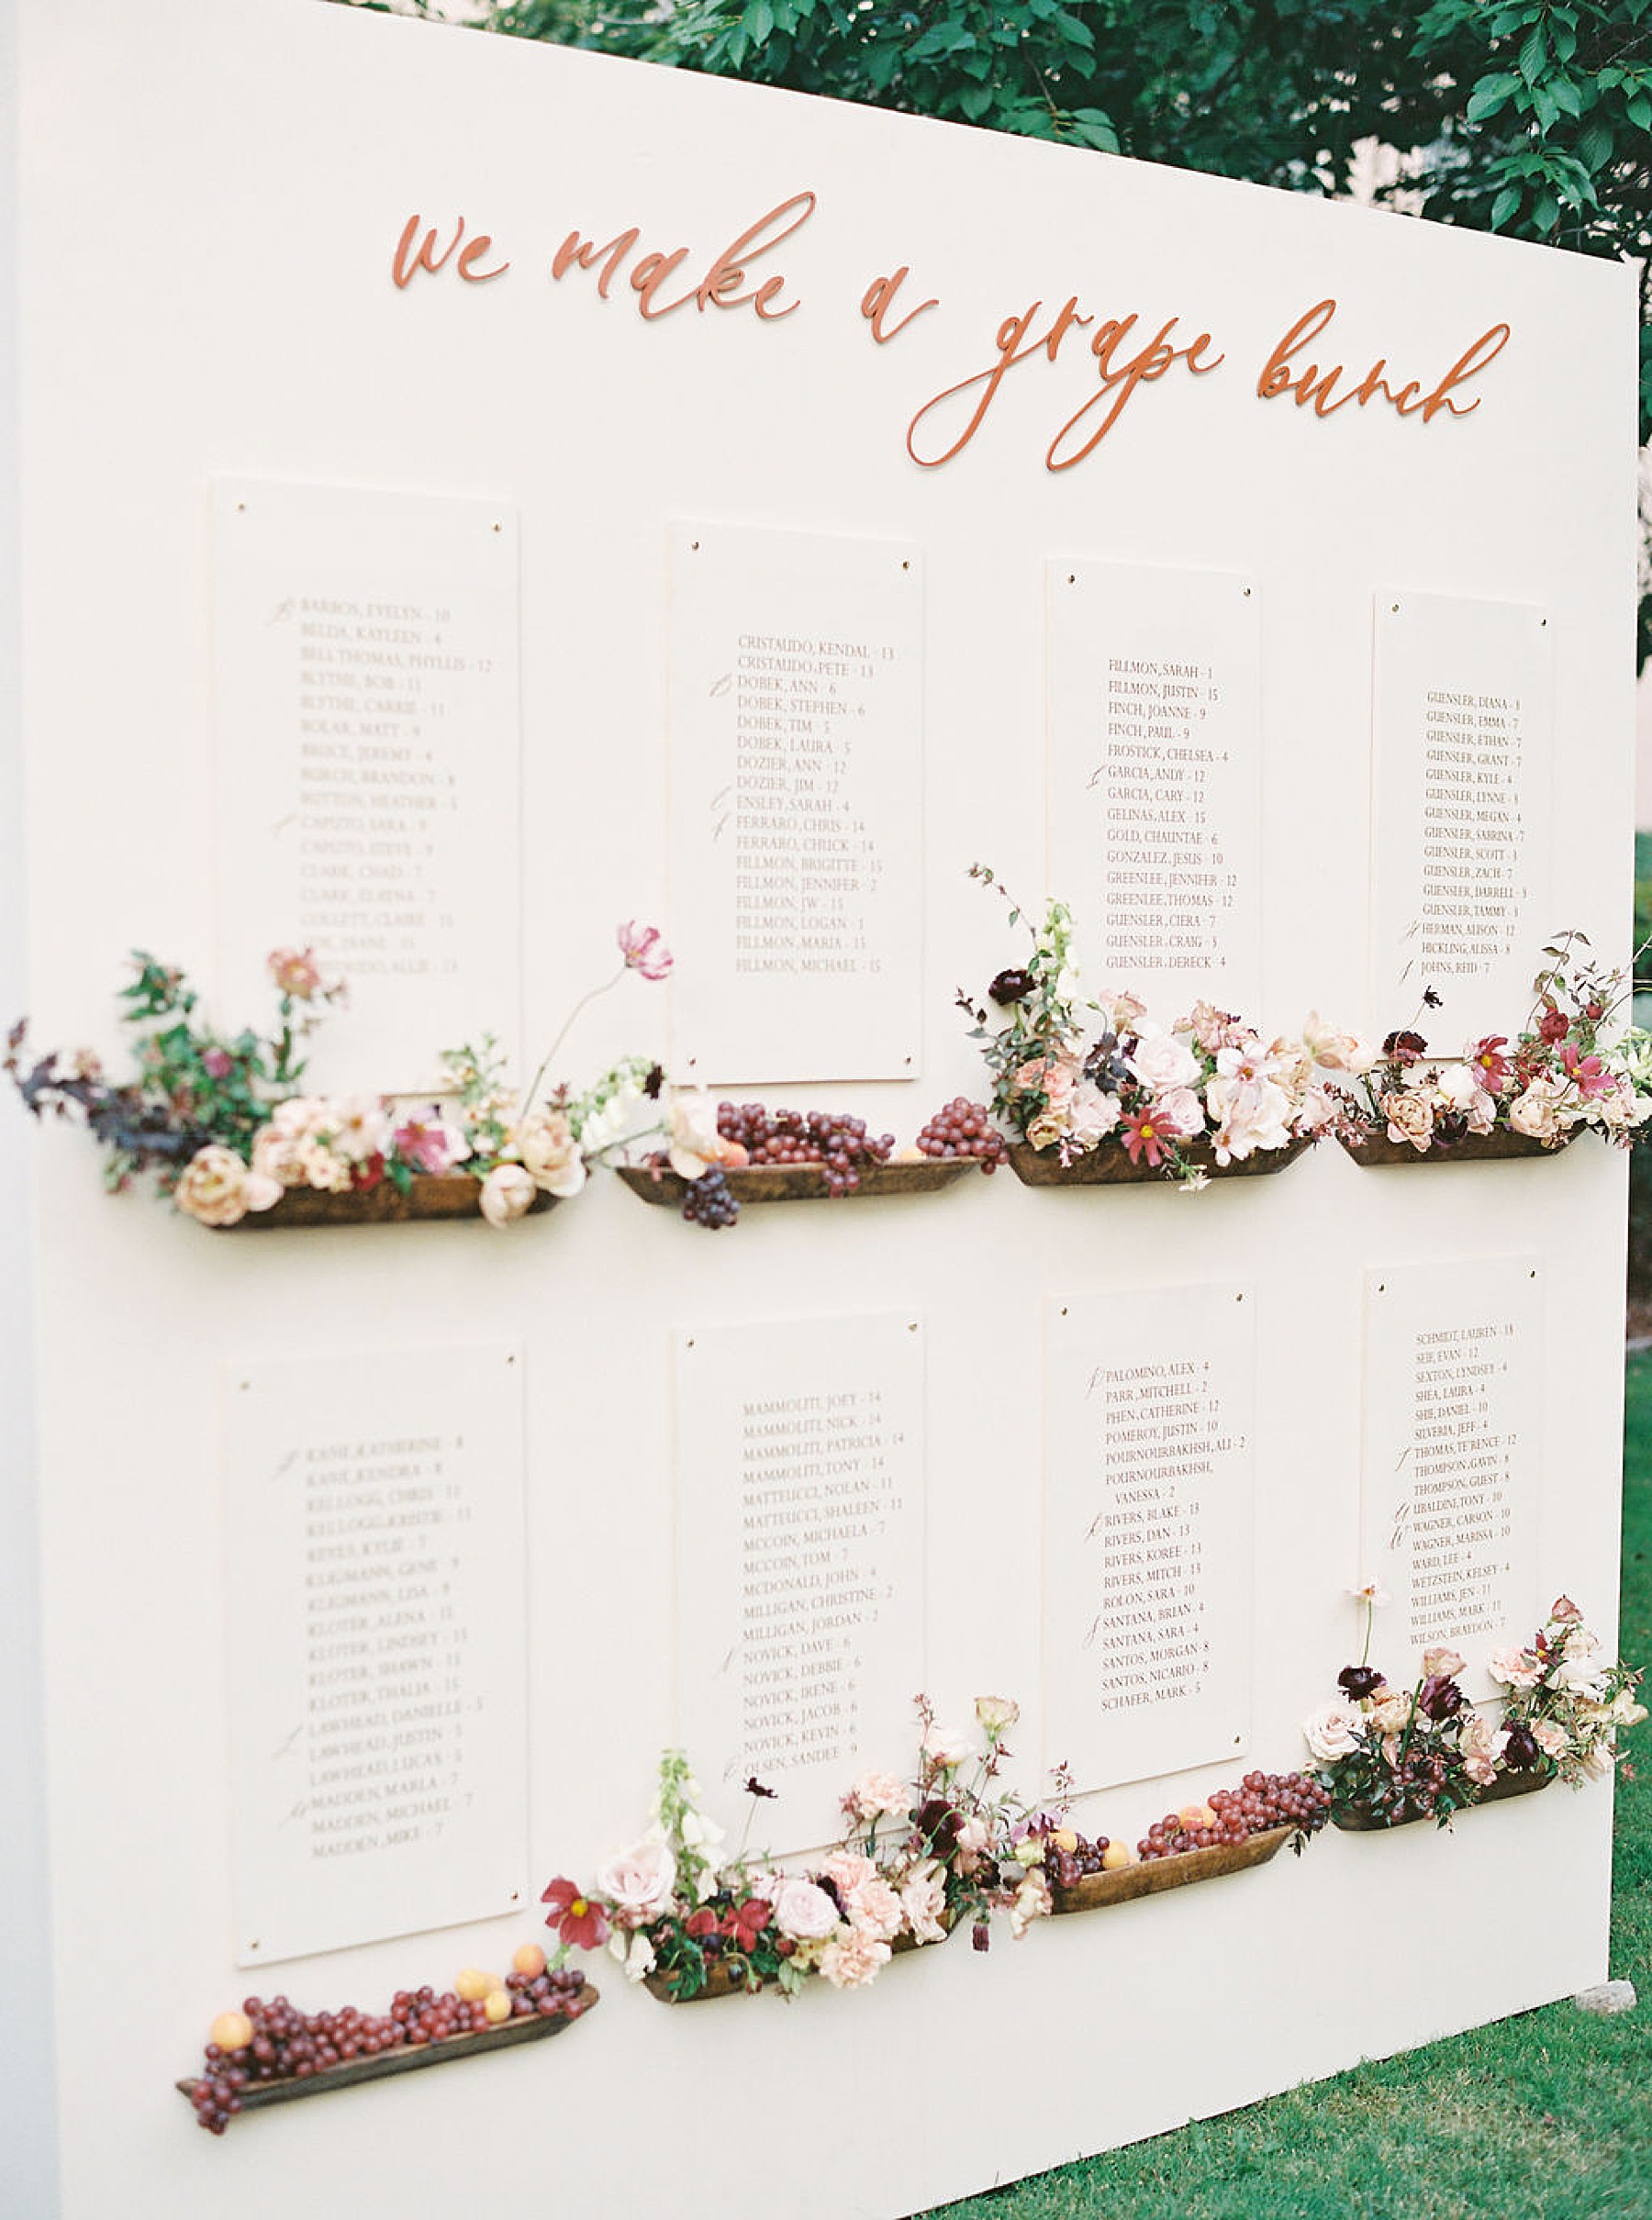 we make a grape bunch
B BARROS, EVELYN - 10
BELDA, KAYLEEN - 4
BELL THOMAS, PHYLLIS - 12
BLYTHE, BOB - 11
BLYTHE, CARRIE - 11
BOLAR, MATT - 9
BRUCE, JEREMY - 4
BURCH, BRANDON - 8
BUTTON, HEATHER - 5
C CAPUTO, SARA - 9
CAPUTO, STEVE - 9
CLARK, CHAD - 7
CLARK, ELAYNA - 7
COLLETT, CLAIRE - 15
CRISTAUDO, KENDAL - 13
CRISTAUDO, PETE - 13
D DOBEK, ANN - 6
DOBEK, STEPHEN - 6
DOBEK, TIM - 5
DOBEK, LAURA - 5
DOZIER, ANN - 12
DOZIER, JIM - 12
E ENSLEY, SARAH - 4
F FERRARO, CHRIS - 14
FERRARO, CHUCK - 14
FILLMON, BRIGITTE - 15
FILLMON, JENNIFER - 2
FILLMON, JW - 15
FILLMON, LOGAN - 1
FILLMON, MARIA - 15
FILLMON, MICHAEL - 15
FILLMON, SARAH - 1
FILLMON, JUSTIN - 15
FINCH, JOANNE - 9
FINCH, PAUL - 9
FROSTICK, CHELSEA - 4
GARCIA, ANDY - 12
GARCIA, CARY - 12
GELINAS, ALEX - 15
GOLD, CHAUNTAE - 6
GONZALEZ, JESUS - 10
GREENLEE, JENNIFER - 12
GREENLEE, THOMAS - 12
GUENSLER, CIERA - 7
GUENSLER, CRAIG - 3
GUENSLER, DERECK - 4
GUENSLER, DIANA - 3
GUENSLER, EMMA - 7
GUENSLER, ETHAN - 7
GUENSLER, GRANT - 7
GUENSLER, KYLE - 4
GUENSLER, LYNNE - 3
GUENSLER, MEGAN - 4
GUENSLER, SABRINA - 7
GUENSLER, SCOTT - 3
GUENSLER, ZACH - 7
GUENSLER, DARRELL - 3
GUENSLER, TAMMY - 3
H HERMAN, ALISON - 12
HICKLING, ALISSA - 8
J JOHNS, REID - 7
KANE, KATHERINE - 8
KANE, KENDRA - 8
KELLOGG, CHRIS - 11
KELLOGG, KRISTIE - 11
KEYES, KYLIE - 7
KLIGMANN, GENE - 9
KLIGMANN, LISA - 9
KLOTER, ALENA - 15
KLOTER, LINDSEY - 15
KLOTER, SHAWN - 15
KLOTER, THALIA - 15
L LAWHEAD, DANIELLE - 5
LAWHEAD, JUSTIN - 5
LAWHEAD, LUCAS - 5
M MADDEN, MARLA - 7
MADDEN, MICHAEL - 7
MADDEN, MIKE - 7
MAMMOLITI, JOEY - 14
MAMMOLITI, NICK - 14
MAMMOLITI, PATRICIA - 14
MAMMOLITI, TONY - 14
MATTEUCCI, NOLAN - 11
MATTEUCCI, SHALEEN - 11
MCCOIN, MICHAELA - 7
MCCOIN, TOM - 7
MCDONALD, JOHN - 4
MILLIGAN, CHRISTINE - 2
MILLIGAN, JORDAN - 2
NOVICK, DAVE - 6
NOVICK, DEBBIE - 6
NOVICK, IRENE - 6
NOVICK, JACOB - 6
NOVICK, KEVIN - 6
O OLSEN, SANDEE - 9
P PALOMINO, ALEX - 4
PARR, MITCHELL - 2
PHEN, CATHERINE - 12
POMEROY, JUSTIN - 10
POURNOURBAKHSH, ALI - 2
POURNOURBAKHSH,
VANESSA - 2
R RIVERS, BLAKE - 13
RIVERS, DAN - 13
RIVERS, KOREE - 13
RIVERS, MITCH - 13
ROLON, SARA - 10
S SANTANA, BRIAN - 4
SANTANA, SARA - 4
SANTOS, MORGAN - 8
SANTOS, NICARIO - 8
SCHAFER, MARK - 5
SCHMIDT, LAUREN - 13
SEIF, EVAN - 12
SEXTON, LYNDSEY - 4
SHEA, LAURA - 4
SHIE, DANIEL - 10
SILVERIA, JEFF - 4
T THOMAS, TE'RENCE - 12
THOMPSON, GAVIN - 8
THOMPSON, GUEST - 8
U UBALDINI, TONY - 10
W WAGNER, CARSON - 10
WAGNER, MARISSA - 10
WARD, LEE - 4
WETZSTEIN, KELSEY - 4
WILLIAMS, JEN - 11
WILLIAMS, MARK - 11
WILSON, BRAEDON - 7